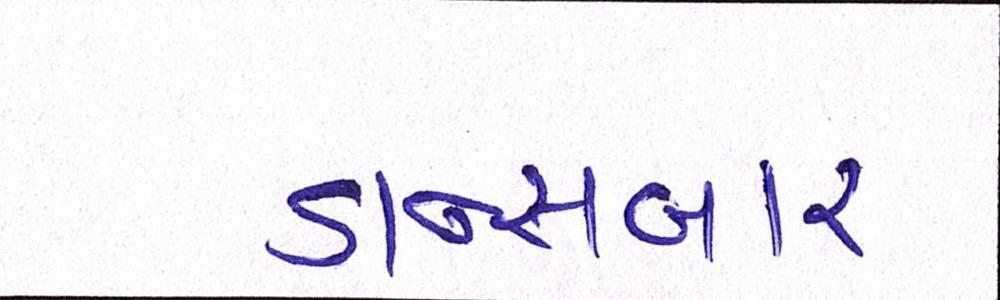 ડાન્સબાર